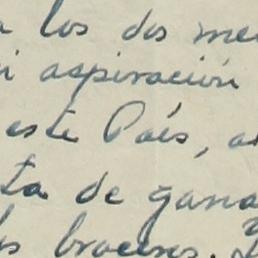 los dos me
aspiración
este País, a
ta de gana
braceros.